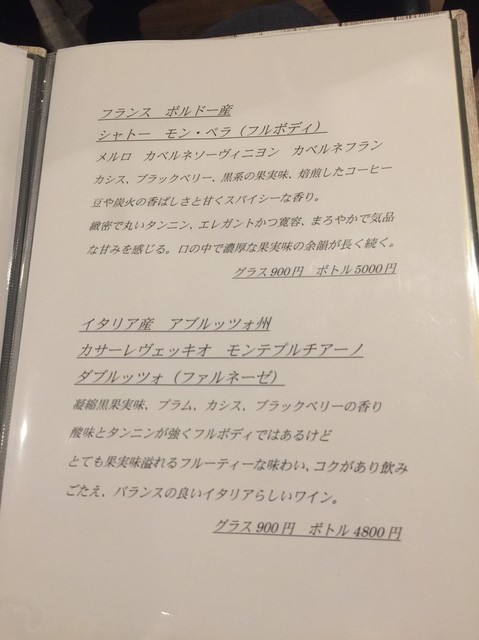 フランス　ボルドー産
シャトー　モン・ペラ（フルボディ）
メルロ　カベルネソーヴィニヨン　カベルネフラン
カシス、ブラックベリー、黒系の果実味、焙煎したコーヒー
豆や炭火の香ばしさと甘くスパイシーな香り。
緻密で丸いタンニン、エレガントかつ寛容、まろやかで気品
な甘みを感じる。口の中で濃厚な果実味の余韻が長く続く。
グラス900円　ボトル5000円
イタリア産　アブルッツォ州
カサーレヴェッキオ　モンテプルチアーノ
ダブルッツォ（ファルネーゼ）
凝縮黒果実味、プラム、カシス、ブラックベリーの香り
酸味とタンニンが強くフルボディではあるけど
とても果実味溢れるフルーティーな味わい、コクがあり飲み
ごたえ、バランスの良いイタリアらしいワイン。
グラス900円　ボトル4800円